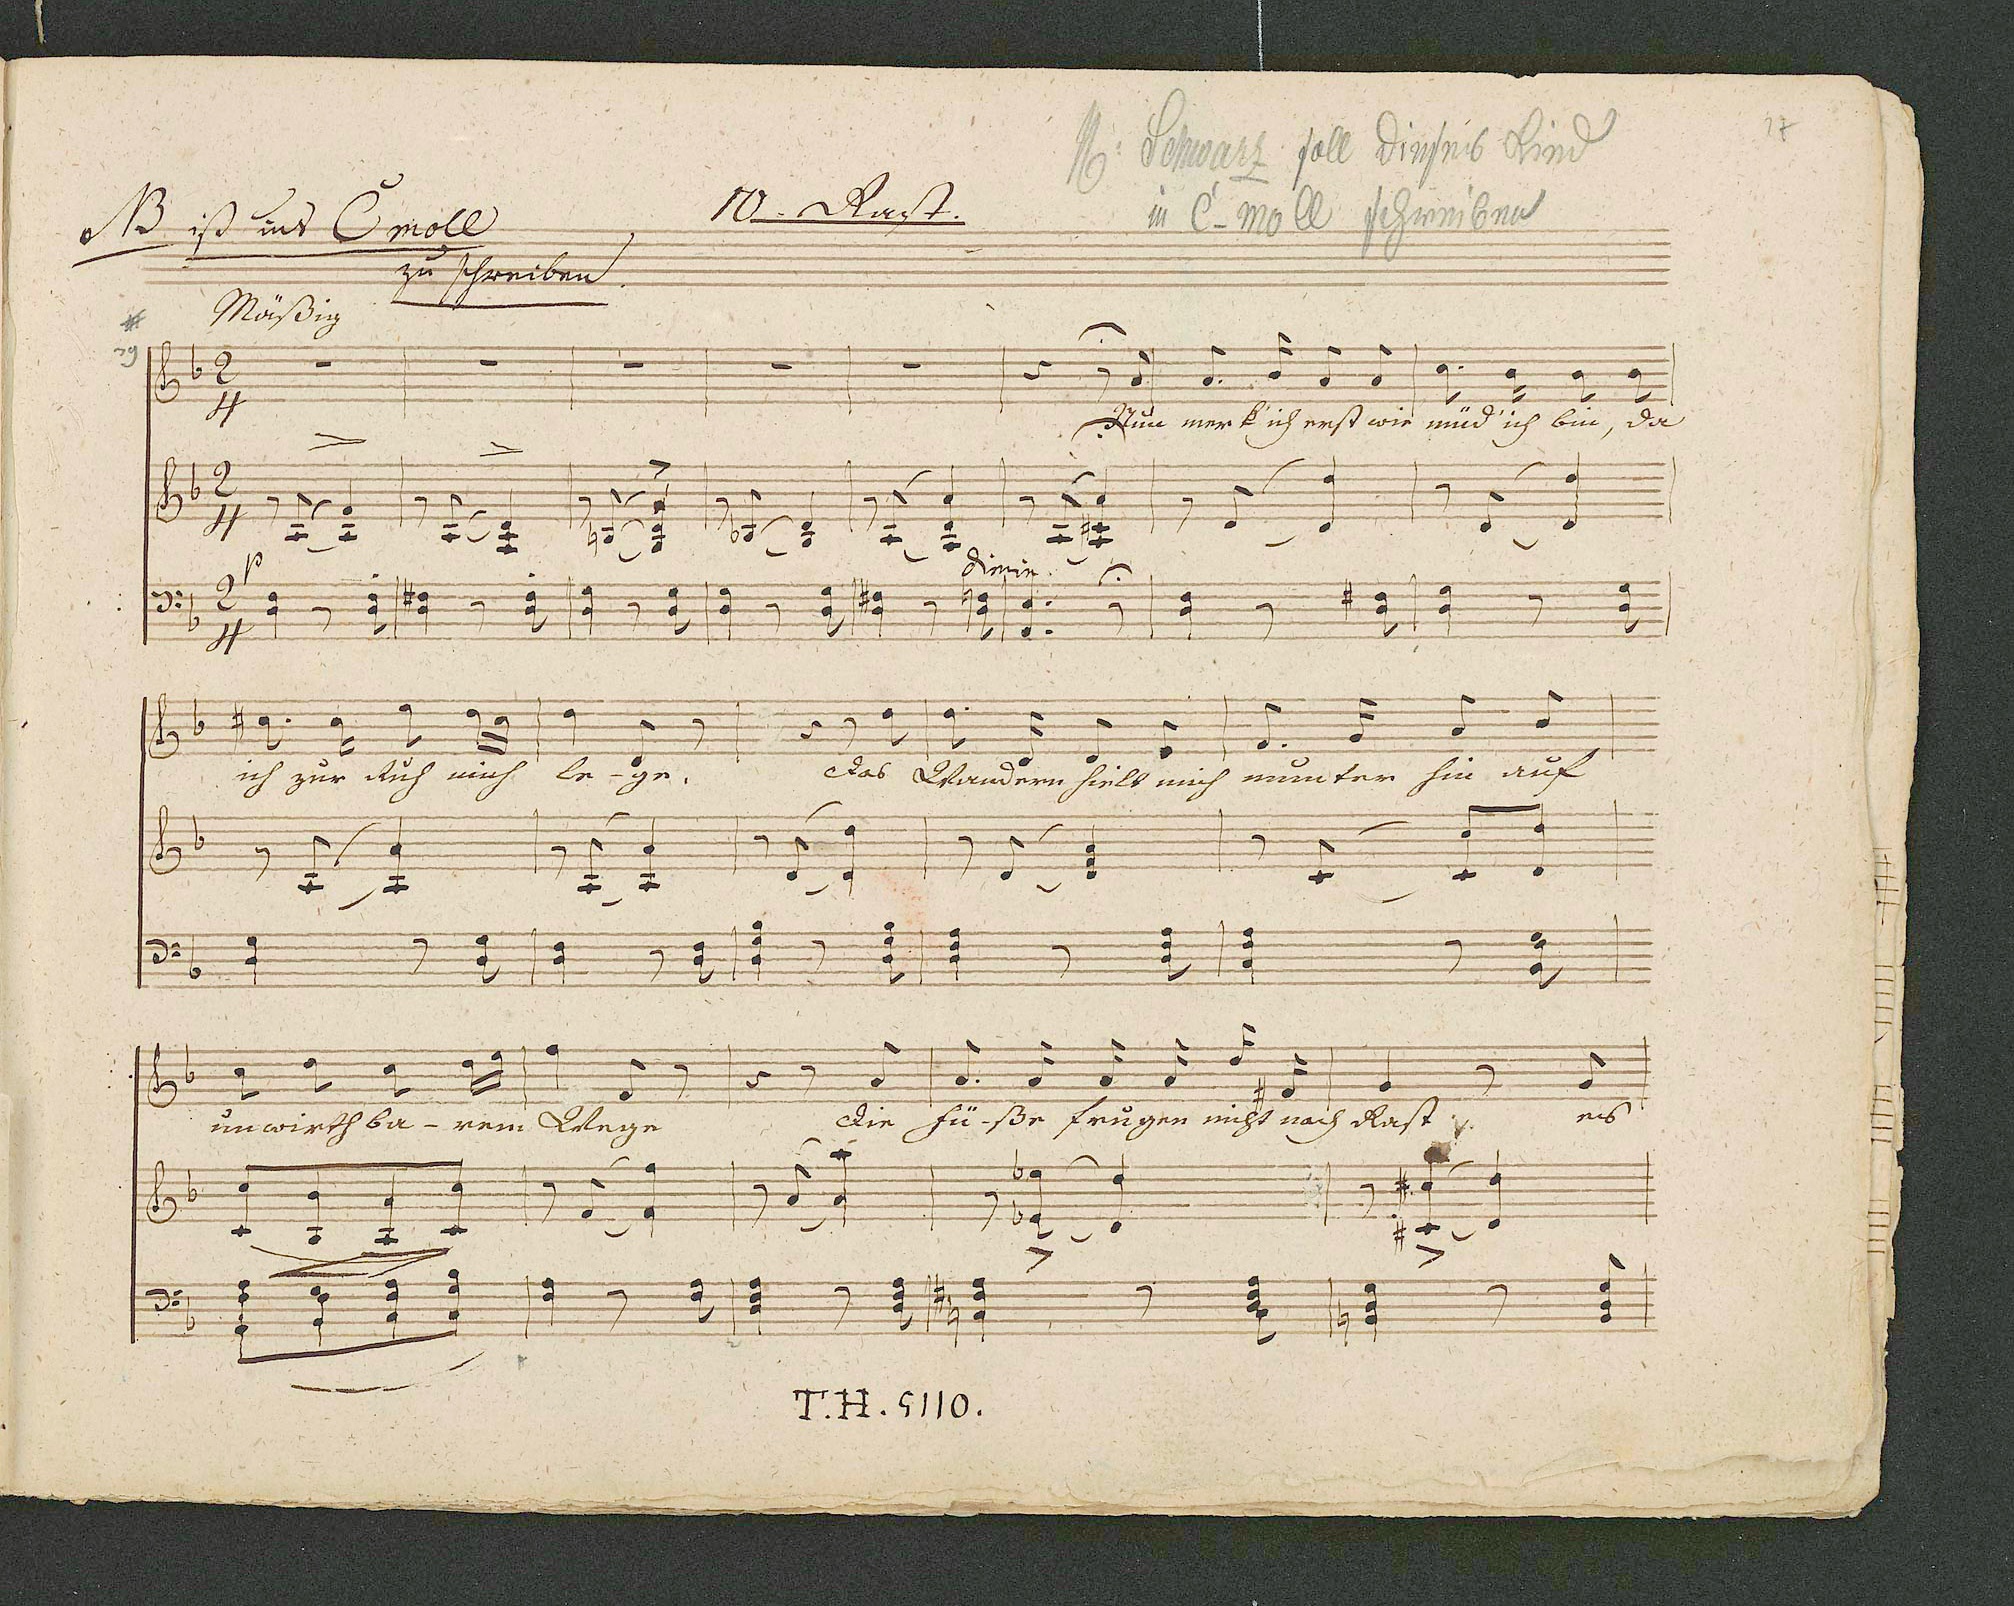 NB ist ins C moll
zu schreiben.
10. Rast.
H: Schwarz soll dieses Lied
in C-moll schreiben
17
Mäßig
39
2
4
Nun merk' ich erst wie müd' ich bin, da
2
4
p
dimin.
2
4
ich zur Ruh mich le-ge.
Das Wandern hielt mich munter hin auf
unwirthba-rem Wege
Die Fü-ße frugen nicht nach Rast
es
T.H. 5110.